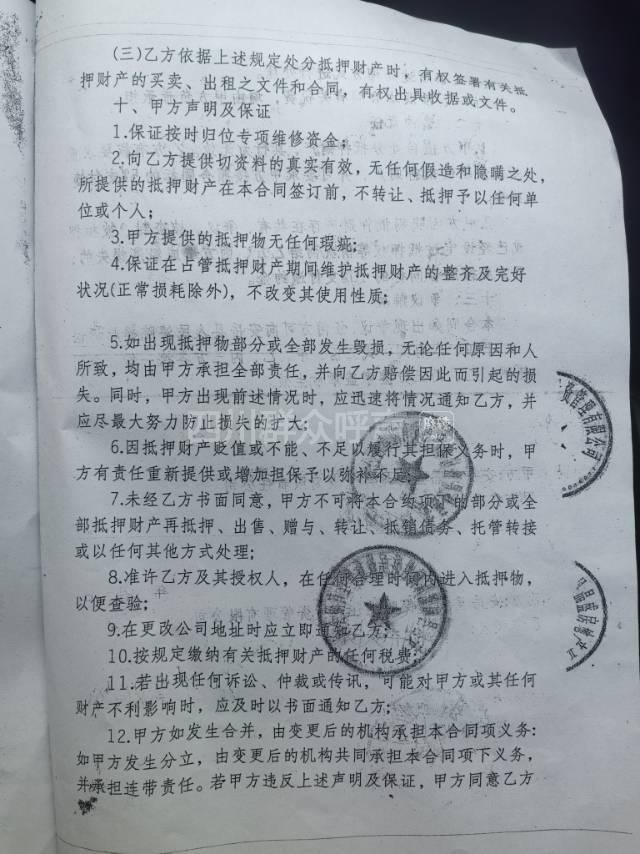 (三)乙方依据上述规定处分抵押财产时，有权签署有关抵
押财产的买卖、出租之文件和合同，有权出具收据或文件。
十、甲方声明及保证
1.保证按时归位专项维修资金；
2.向乙方提供切资料的真实有效，无任何假造和隐瞒之处，
所提供的抵押财产在本合同签订前，不转让、抵押予以任何单
位或个人；
3.甲方提供的抵押物无任何瑕疵；
4.保证在占管抵押财产期间维护抵押财产的整齐及完好
状况(正常损耗除外)，不改变其使用性质；
5.如出现抵押物部分或全部发生毁损，无论任何原因和人
所致，均由甲方承担全部责任，并向乙方赔偿因此而引起的损
失。同时，甲方出现前述情况时，应迅速将情况通知乙方，并
应尽最大努力防止损失的扩大；
四川群众呼声
6.因抵押财产贬值或不能、不足以履行其担保义务时，甲
方有责任重新提供或增加担保予以弥补不足；
7.未经乙方书面同意，甲方不可将本合约项下的部分或全
部抵押财产再抵押、出售、赠与、转让、抵销债务、托管转接
或以任何其他方式处理；
8.准许乙方及其授权人，在任何合理时间内进入抵押物，
以便查验；
9.在更改公司地址时应立即通知乙方；
10.按规定缴纳有关抵押财产的任何税费；
11.若出现任何诉讼、仲裁或传讯，可能对甲方或其任何
财产不利影响时，应及时以书面通知乙方；
12.甲方如发生合并，由变更后的机构承担本合同项义务：
如甲方发生分立，由变更后的机构共同承担本合同项下义务，
并承担连带责任。若甲方违反上述声明及保证，甲方同意乙方
管理有限公司